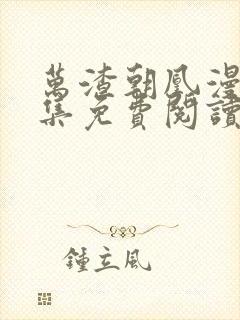 萬渣朝凰漫
集免費閱讀
鍾立風